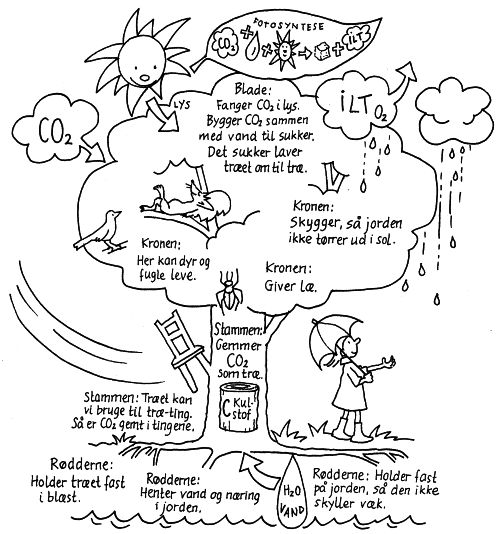 FOTOSYNTESE
CO2 + + → + iLT
LYS
CO2
iLT O2
Blade:
Fanger CO2 i lys.
Bygger CO2 sammen
med vand til sukker.
Det sukker laver
træet om til træ.
Kronen:
Skygger, så jorden
ikke tørrer ud i sol.
Kronen:
Her kan dyr og
fugle leve.
Kronen:
Giver læ.
Stammen:
Gemmer
CO2
som træ.
C Kul-
stof
Stammen: Træet kan
vi bruge til træ-ting.
Så er CO2 gemt i tingene.
Rødderne:
Holder træet fast
i blæst.
Rødderne:
Henter vand og næring
i jorden.
H2O
VAND
Rødderne: Holder fast
på jorden, så den ikke
skyller væk.